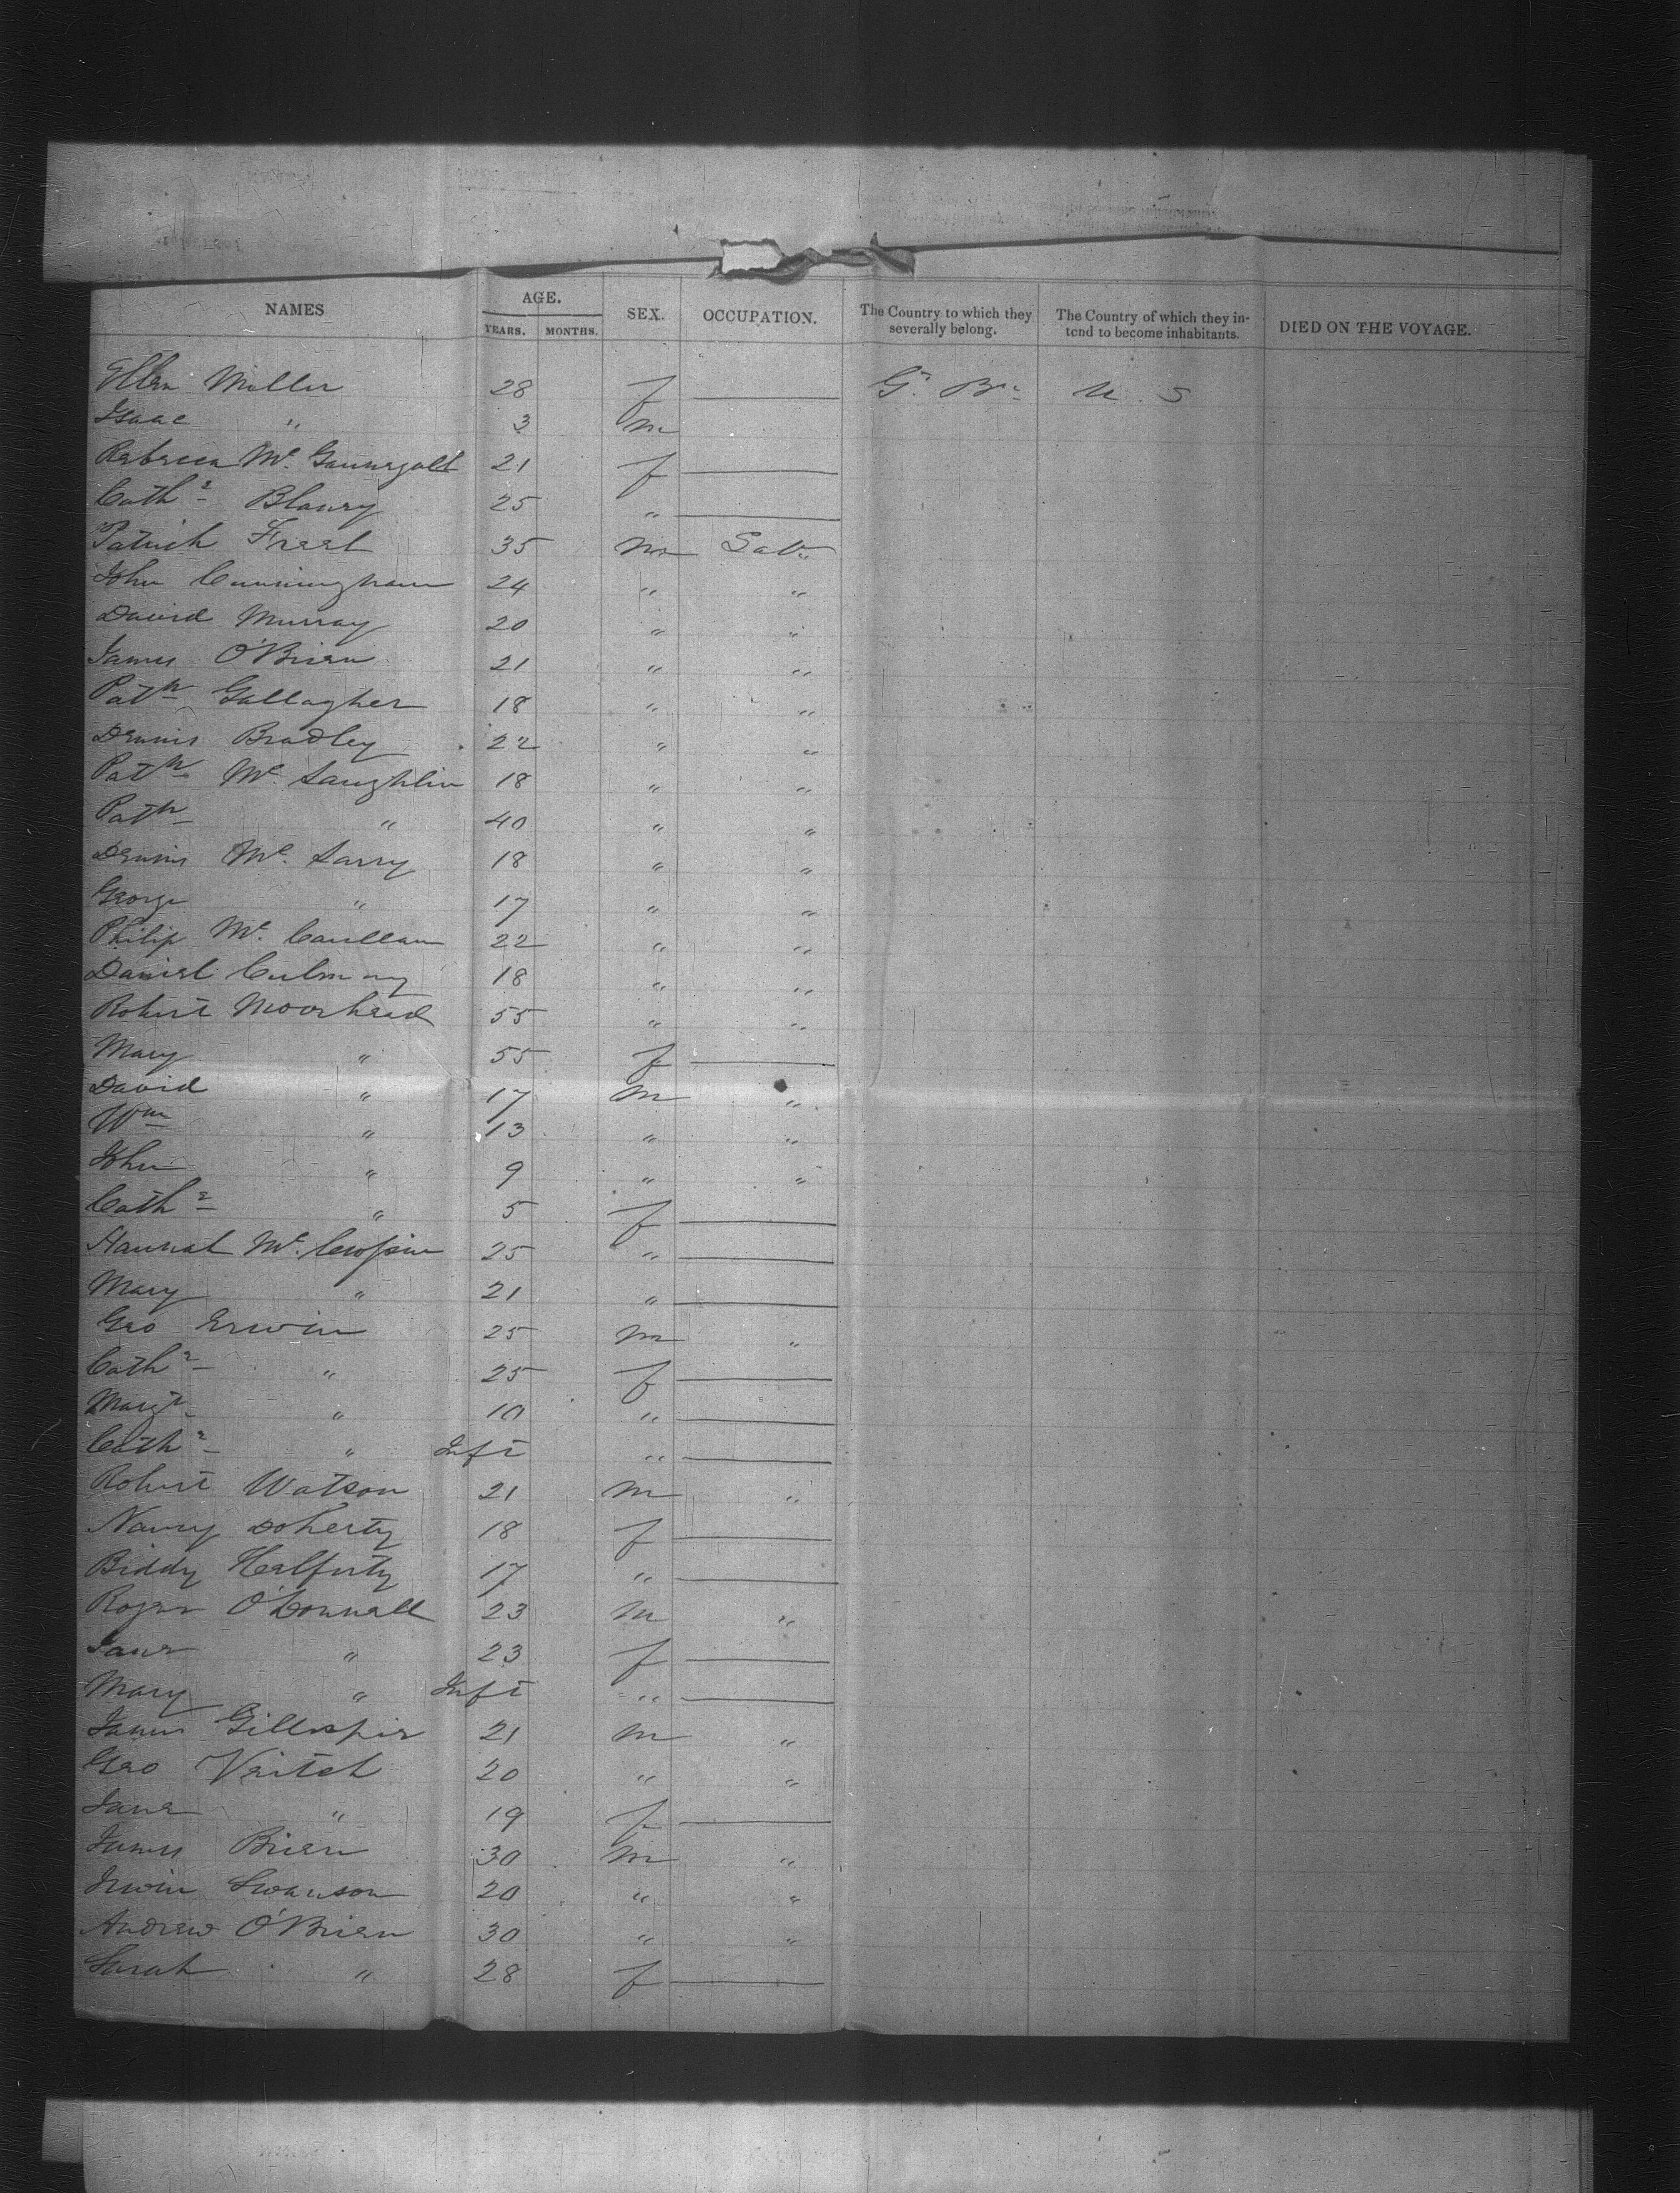 NAMES AGE. SEX. OCCUPATION. The Country to which they severally belong. The Country of which they intend to become inhabitants. DIED ON THE VOYAGE.
YEARS. MONTHS.
Ellen Miller 28 f — Gt. Bn. U. S
Isaac " 3 m
Rebecca Mc. 21 f —
Cathe Blaney 25 " —
Patrick Freel 35 m Labr.
John Cunningham 24 " "
David Murray 20 " "
James O'Brien 21 " "
Patk Gallagher 18 " "
Dennis Bradley 22 " "
Patk Mc. Laughlin 18 " "
Patk " 40 " "
Dennis Mc. Larry 18 " "
George " 17 " "
Philip Mc. 22 " "
Daniel 18 " "
Robert Moorhead 55 " "
Mary " 55 f —
David " 17 m "
Wm " 13 " "
John " 9 " "
Cathe " 5 f —
Hannah Mc. 25 " —
Mary " 21 " —
Geo Erwin 25 m "
Cathe " 25 f —
Margt " 10 " —
Cathe " Inft " —
Robert Watson 21 m "
Nancy Doherty 18 f —
Biddy Helferty 17 " —
Roger O'Donnell 23 m "
Jane " 23 f —
Mary " Inft " —
James Gillespie 21 m "
Geo Veitch 20 " "
Jane " 19 f —
James Brien 30 m "
Irwin Swanson 20 " "
Andrew O'Brien 30 " "
Sarah " 28 f —